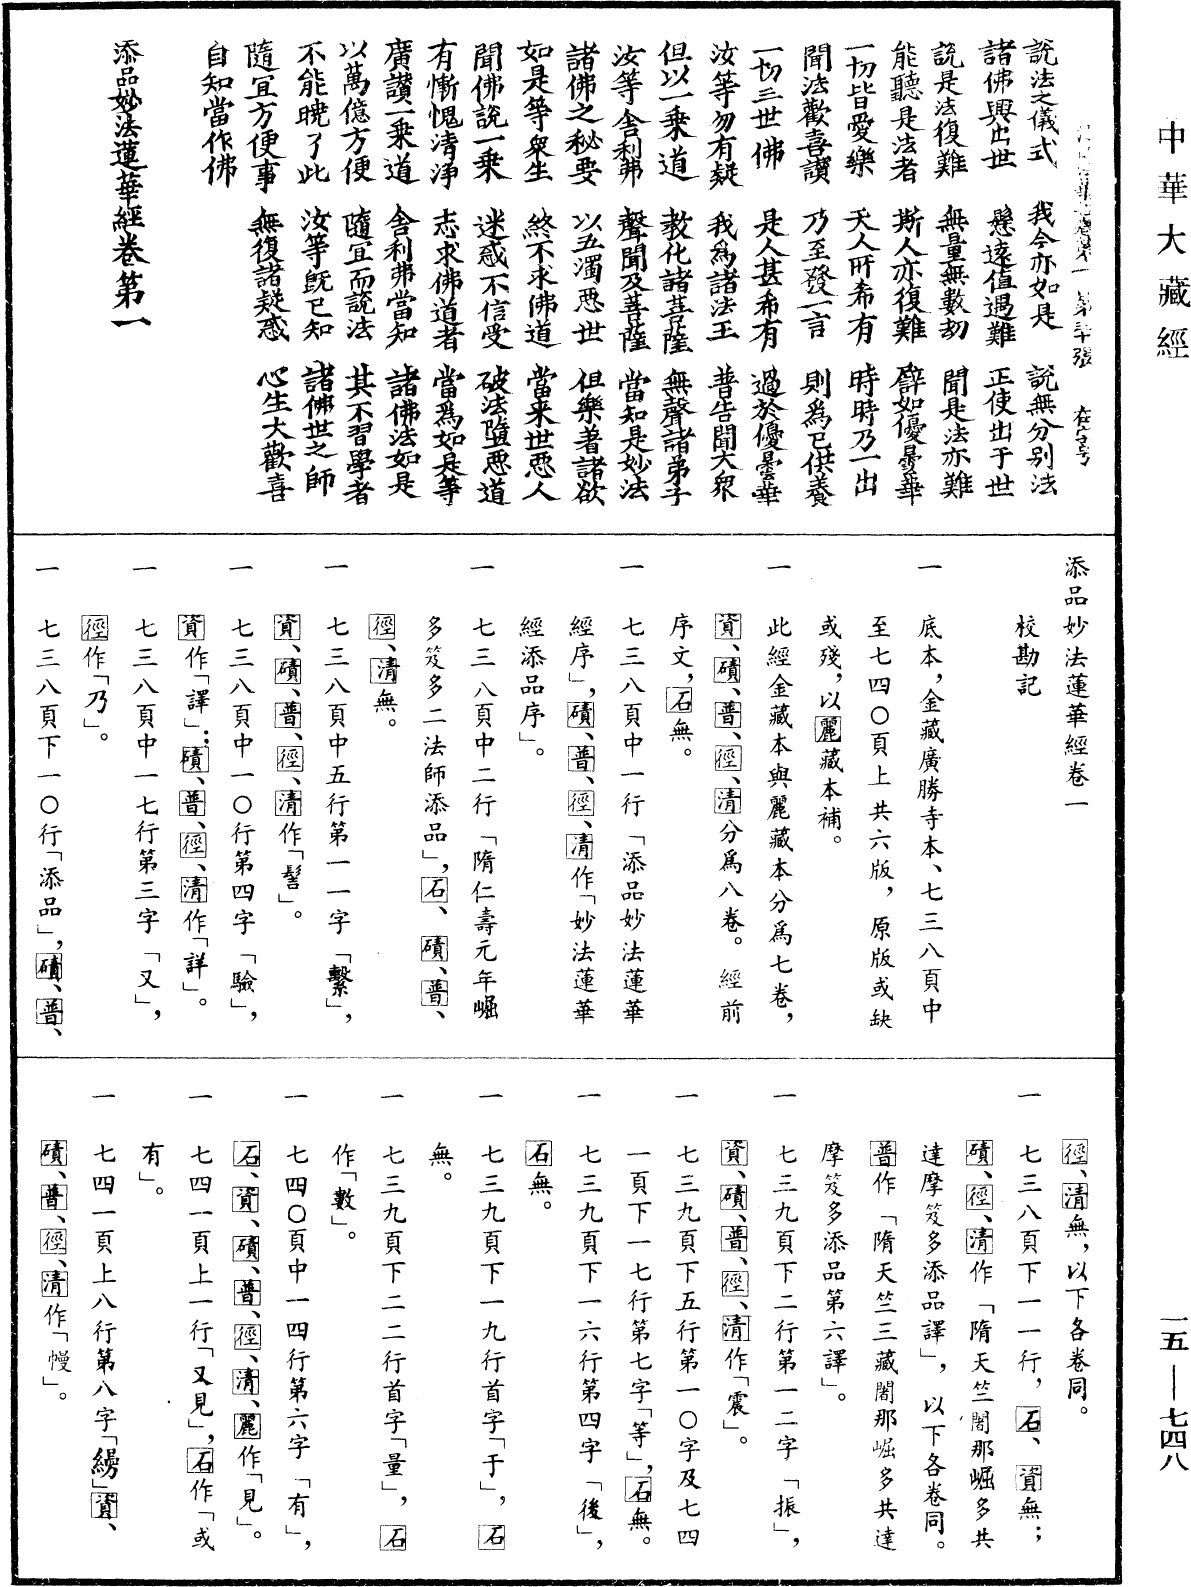 中華大藏經
説法之儀式　我今亦如是　説無分別法
諸佛興出世　懸遠值遇難　正使出于世
説是法復難　無量無數劫　聞是法亦難
能聽是法者　斯人亦復難　譬如優曇華
一切皆愛樂　天人所希有　時時乃一出
聞法歡喜讃　乃至發一言　則爲已供養
一切三世佛　是人甚希有　過於優曇華
汝等勿有疑　我爲諸法王　普告聞大衆
但以一乗道　教化諸菩薩　無聲諸弟子
汝等舍利弗　聲聞及菩薩　當知是妙法
諸佛之秘要　以五濁惡世　但樂著諸欲
如是等衆生　終不求佛道　當來世惡人
聞佛説一乗　迷惑不信受　破法墮惡道
有慚愧清淨　志求佛道者　當爲如是等
廣讃一乗道　舍利弗當知　諸佛法如是
以萬億方便　隨宜而説法　其不習學者
不能曉了此　汝等既已知　諸佛世之師
隨宜方便事　無復諸疑惑　心生大歡喜
自知當作佛
添品妙法蓮華經卷第一
添品妙法蓮華經卷一
校勘記
一　底本，金藏廣勝寺本、七三八頁中
至七四〇頁上共六版，原版或缺
或殘，以麗藏本補。
一　此經金藏本與麗藏本分爲七卷，
資、磧、普、徑、清分爲八卷。經前
序文，石無。
一　七三八頁中一行「添品妙法蓮華
經序」，磧、普、徑、清作「妙法蓮華
經添品序」。
一　七三八頁中二行「隋仁壽元年崛
多笈多二法師添品」，石、磧、普、
徑、清無。
一　七三八頁中五行第一一字「繫」，
資、磧、普、徑、清作「髻」。
一　七三八頁中一〇行第四字「驗」，
資作「譯」；磧、普、徑、清作「詳」。
一　七三八頁中一七行第三字「又」，
徑作「乃」。
一　七三八頁下一〇行「添品」，磧、普、
徑、清無，以下各卷同。
一　七三八頁下一一行，石、資無；
磧、徑、清作「隋天竺闍那崛多共
達摩笈多添品譯」，以下各卷同。
普作「隋天竺三藏闍那崛多共達
摩笈多添品第六譯」。
一　七三九頁下二行第一二字「振」，
資、磧、普、徑、清作「震」。
一　七三九頁下五行第一〇字及七四
一頁下一七行第七字「等」，石無。
一　七三九頁下一六行第四字「後」，
石無。
一　七三九頁下一九行首字「于」，石
無。
一　七三九頁下二二行首字「量」，石
作「數」。
一　七四〇頁中一四行第六字「有」，
石、資、磧、普、徑、清、麗作「見」。
一　七四一頁上一行「又見」，石作「或
有」。
一　七四一頁上八行第八字「縵」資、
磧、普、徑、清作「幔」。
一五—七四八